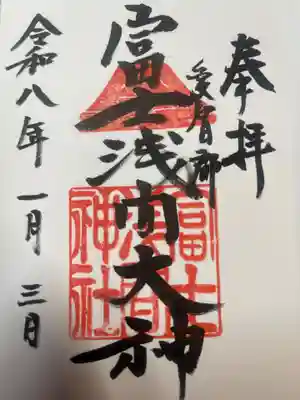 奉拝
愛甲郡
富士浅間大神
富士
浅間
神社
令和八年一月三日